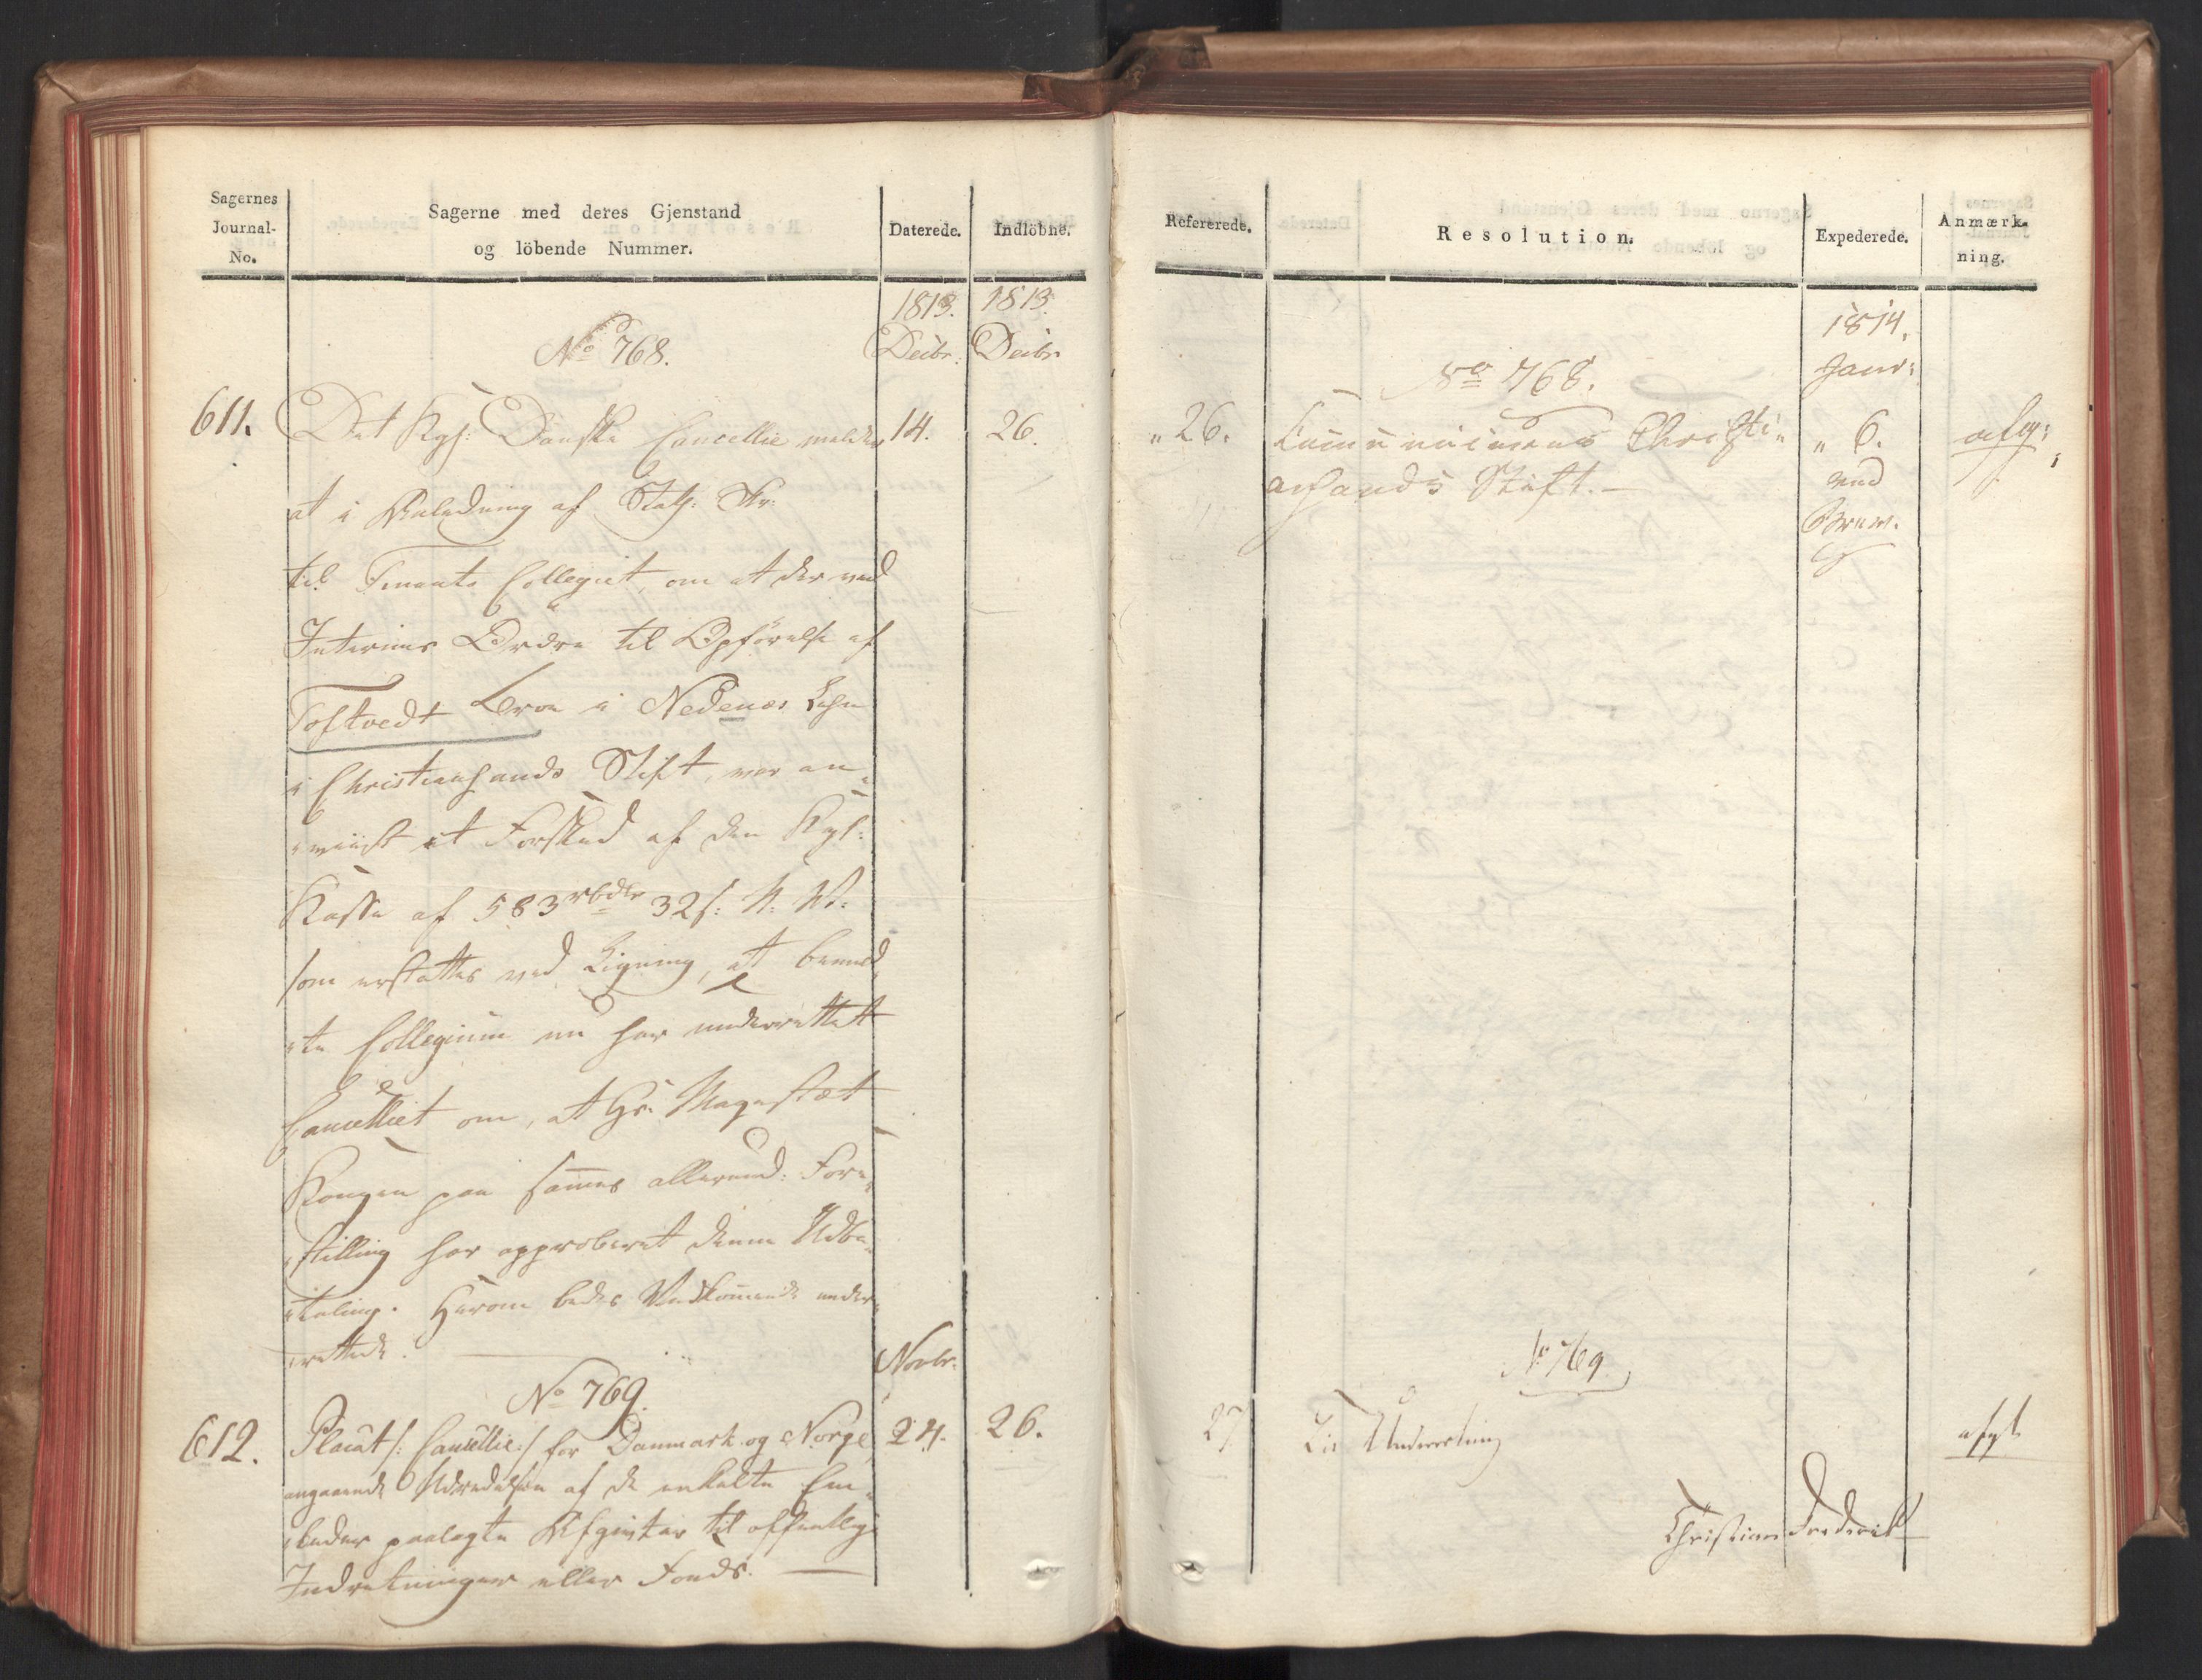 Sagernes
Journal-
No.
Sagerne med deres Gjenstand
og löbende Nummer.
Daterede.
Indlöbne.
1813. 1813.
Decbr. Decbr.
No 768.
611. Det Kgl: Danske Cancellie melder 14. 26.
at i Anledning af Stath: Skr:
til Finants Collegiet, om at der ved
Interims Ordre til Opförelse af
Toftvedt Broe i Nedenæs Lehn
i Christiansands Stift, var an-
-viist et Forskud af den Kgl:
Kasse af 583 rbdlr 32 s: N. V.
som erstattes ved Ligning, at bemeld-
-te Collegium nu har underrettet
Cancelliet om, at Hs: Majestæt
Kongen paa sammes allerund: Fore-
-stilling har approberet denne Udbe-
-taling. Herom bedes Vedkommende under-
-rettede.
Novbr.
No 769.
612. Placat /: Cancellie :/ for Danmark og Norge 24. 26.
angaaende Udredelsen af de enkelte Em-
-beder paalagte Afgivter til offentlige
Indretninger eller Fonds.
Refererede.
Resolution.
Expederede.
Anmærk-
ning.
1814.
Janr:
No 768.
" 26. Communiceres Christi- " 6. afg:
ansands Stift. ved
Brev.
No 769
27 Til Underretning afgt
Christian Frederik